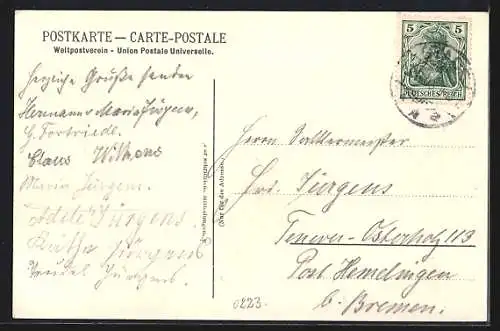 POSTKARTE — CARTE-POSTALE
Weltpostverein - Union Postale Universelle.
5 5
DEUTSCHES REICH
Herzliche Grüße senden
Hermann u Maria Jürgens,
Claus Wilkens
Marie Jürgens.
Adele Jürgens.
Käthe Jürgens
Trudel Jürgens.
(Nur für die Adresse)
Herrn Sattlermeister
Hrd. Jürgens
Tenever-Osterholz 113
Post Hemelingen
b. Bremen.
0223.